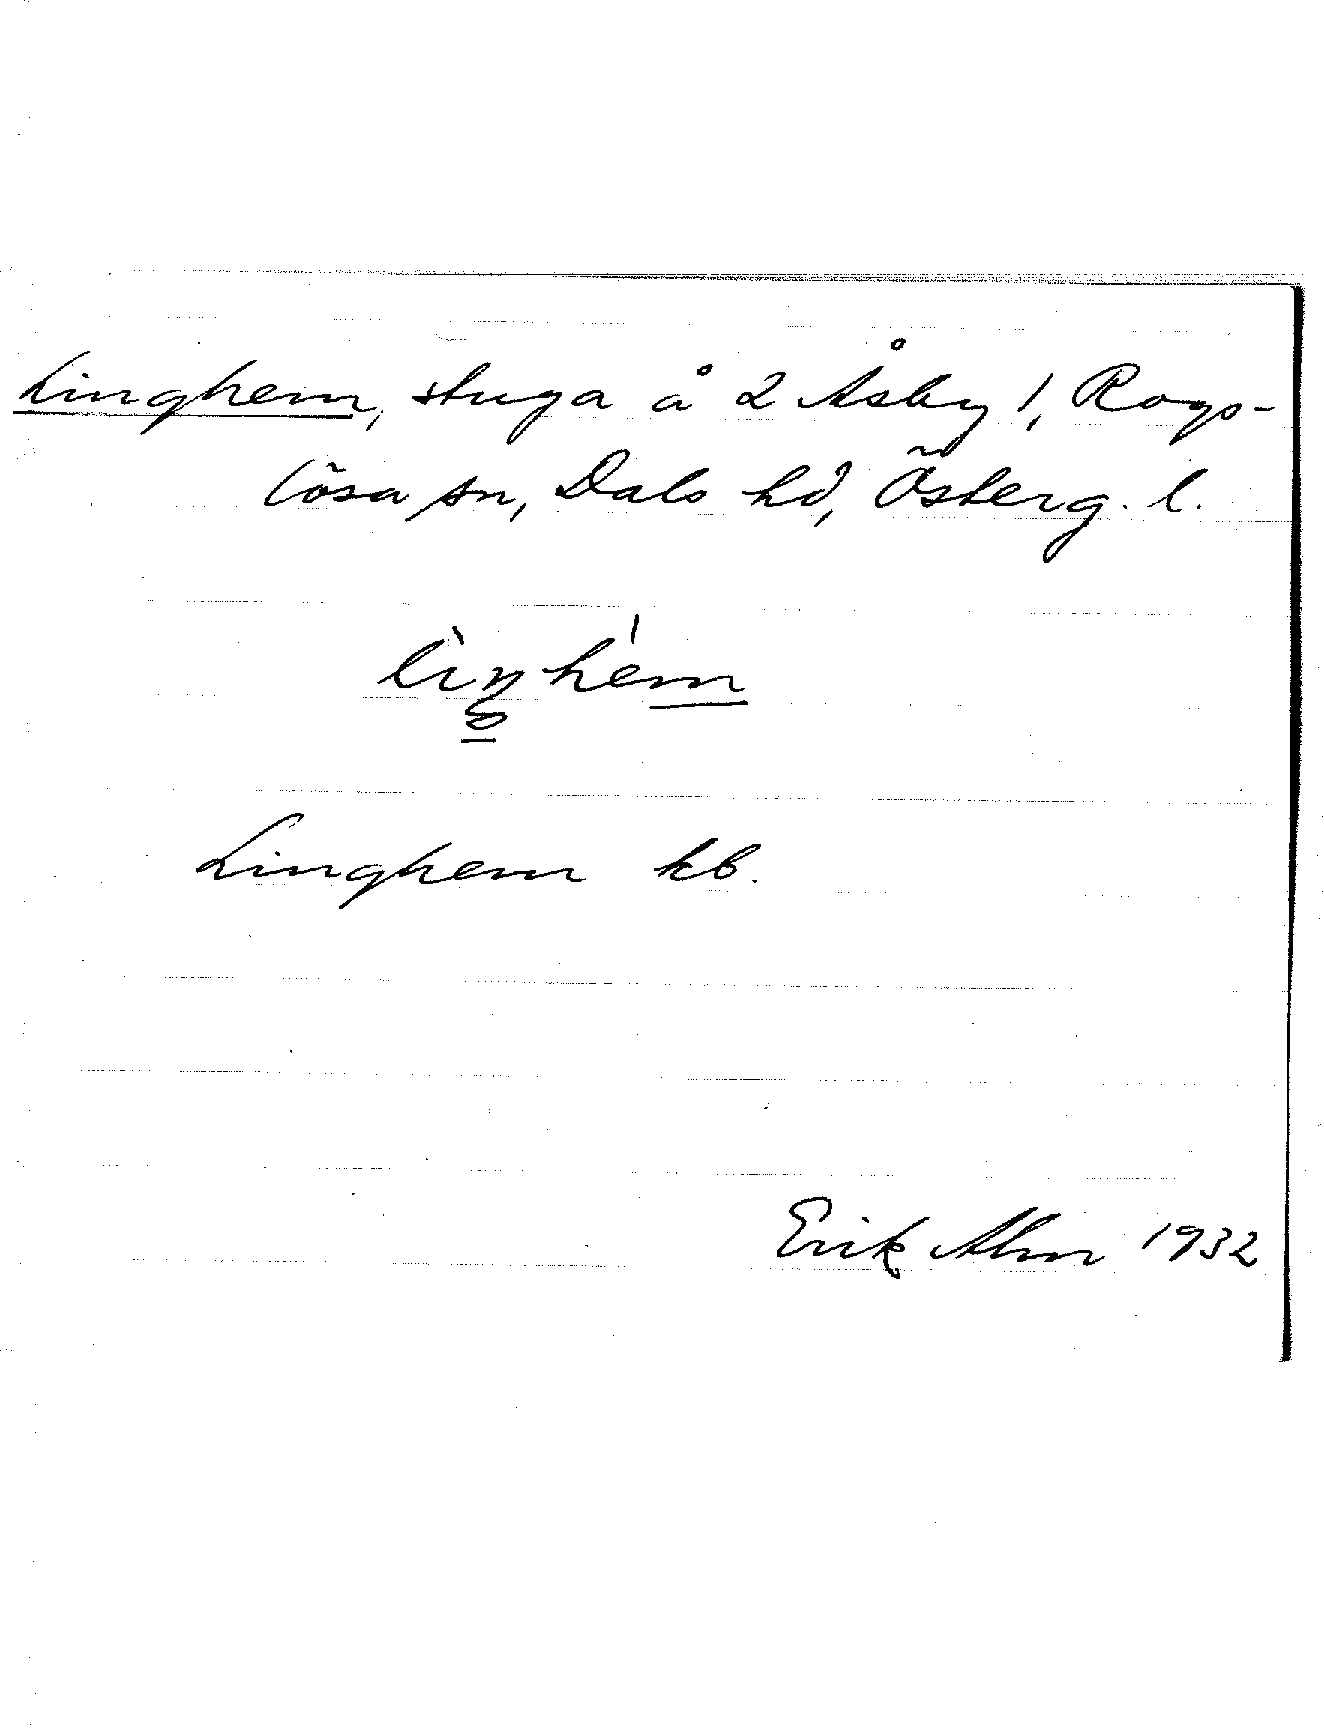 Linghem, stuga å 2 Åsby 1, Rogs-
lösa sn, Dals hd, Österg. l.
lìŋhém
Linghem kb.
Erik Alm 1932